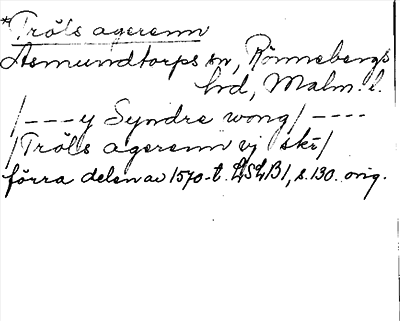 *Tröls agerenn
Asmundtorps sn, Rönnebergs
hd, Malm. l.
/---y Syndre wong/----
/Tröls agerenn vj skr/
förra delen av 1570-t. LSLB1, s. 130. orig.